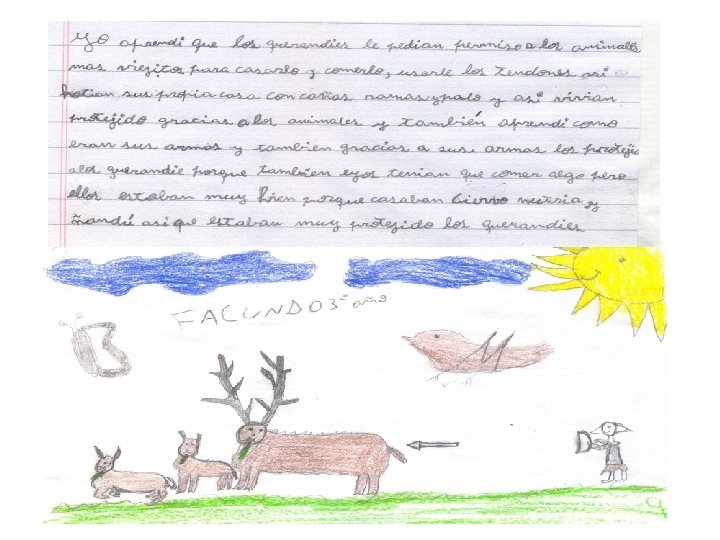 Yo aprendi que los querandies le pedian permiso a los animales
mas viejitos para casarlo y comerlo, usarle los tendones asi
hacian sus propia casa con cañas ramas y palo y asi vivian
protejido gracias a los animales y también aprendi como
eran sus armas y tambien gracias a sus armas los protejio
a los querandie porque tambien eyos tenian que comer algo pero
ellos estaban muy bien porque casaban Ciervo nutria y
ñandú asi que estaban muy protejido los querandies
FACUNDO 3º año